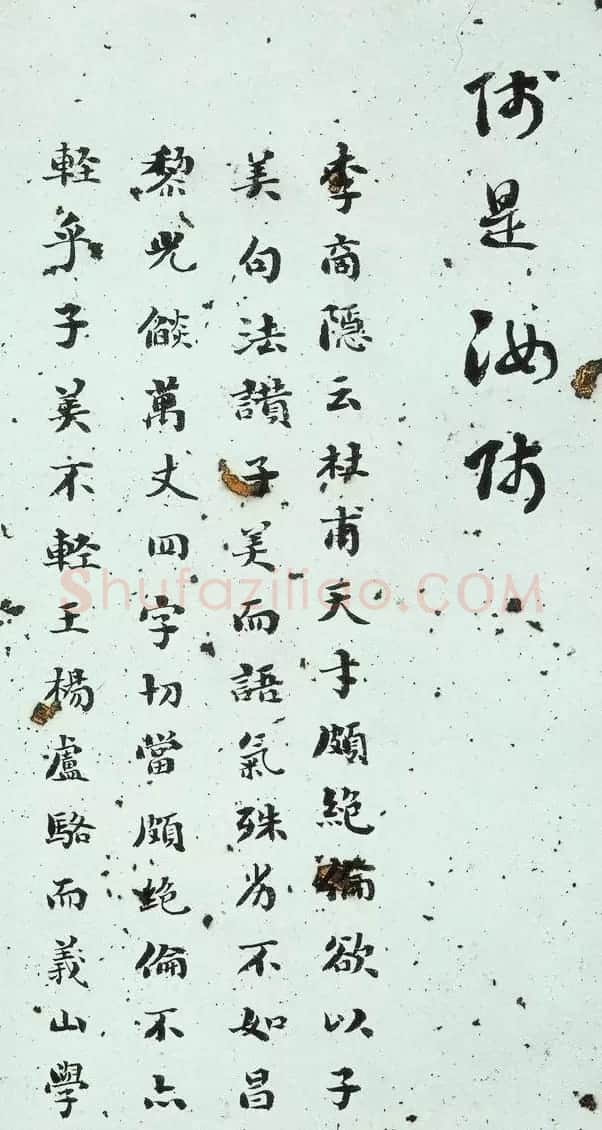 师是汝师
李商隱云杜甫天才頗絕倫欲以子
美句法讚子美而語氣殊劣不如昌
黎光燄萬丈四字切當頗絕倫不亦
輕乎子美不輕王楊盧駱而義山學
Shufaziliao.COM